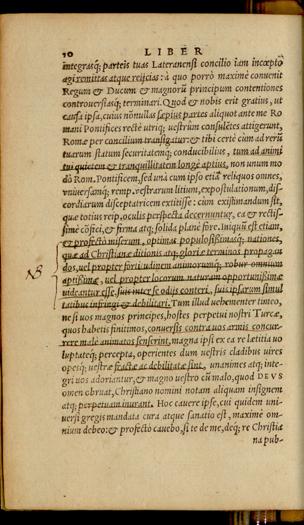 10 LIBER
integrasq; parteis tuas Lateranensi concilio iam incoepto
agi remittas atque reijcias: à quo porrò maximè conuenit
Regum & Ducum & magnorū principum contentiones
controuersiasq; terminari. Quod & nobis erit gratius, ut
causa ipsa, cuius nōnullas sæpius partes aliquot ante me Ro
mani Pontifices rectè utriq; uestrûm consulētes attigerunt,
Romæ per concilium transigatur: & tibi certè cùm ad rerū
tuarum statum securitatemq; conducibilius, tum ad animi
tui quietem & tranquillitatem longè aptius, non unum mo
dò Rom. Pontificem, sed unà cum ipso etiā reliquos omnes,
vniuersamq; remp. vestrarum litium, expostulationum, dis-
cordiarum disceptatricem extitisse: cùm existimandum sit,
quæ totius reip. oculis perspecta decernūtur, ea & rectis-
simè cōfici, & firma atq; solida planè fore. Iniquū est etiam,
& profectò miserum, optimas populosissimasq; nationes,
quæ ad Christianæ ditionis atq; gloriæ terminos propagan
dos, uel propter fortitudinem animorumq; robur omnium
aptissimæ, uel propter locorum naturam opportunissimæ
uideantur esse, suis inter se odijs conteri, suis ipsarum simul
tatibus infringi & debilitari. Tum illud uehementer timeo,
ne si uos magnos principes, hostes perpetui nostri Turcæ,
quos habetis finitimos, conuersis contra uos armis concur-
rere malè animatos senserint, magna ipsi ex ea re lætitia uo
luptateq; percepta, operientes dum uestris cladibus uires
opesq; uestræ fractæ ac debilitatæ sint, unanimes atq; inte-
gri uos adoriantur, & magno uestro cū malo, quod DEVS
omen obruat, Christiano nomini notam aliquam insignem
atq; perpetuam inurant. Hoc cauere ipse, cui quidem uni-
uersi gregis mandata cura atque sanatio est, maximè om-
nium debeo: & profectò cauebo, si te de me, deq; re Christia
na pub-
NB